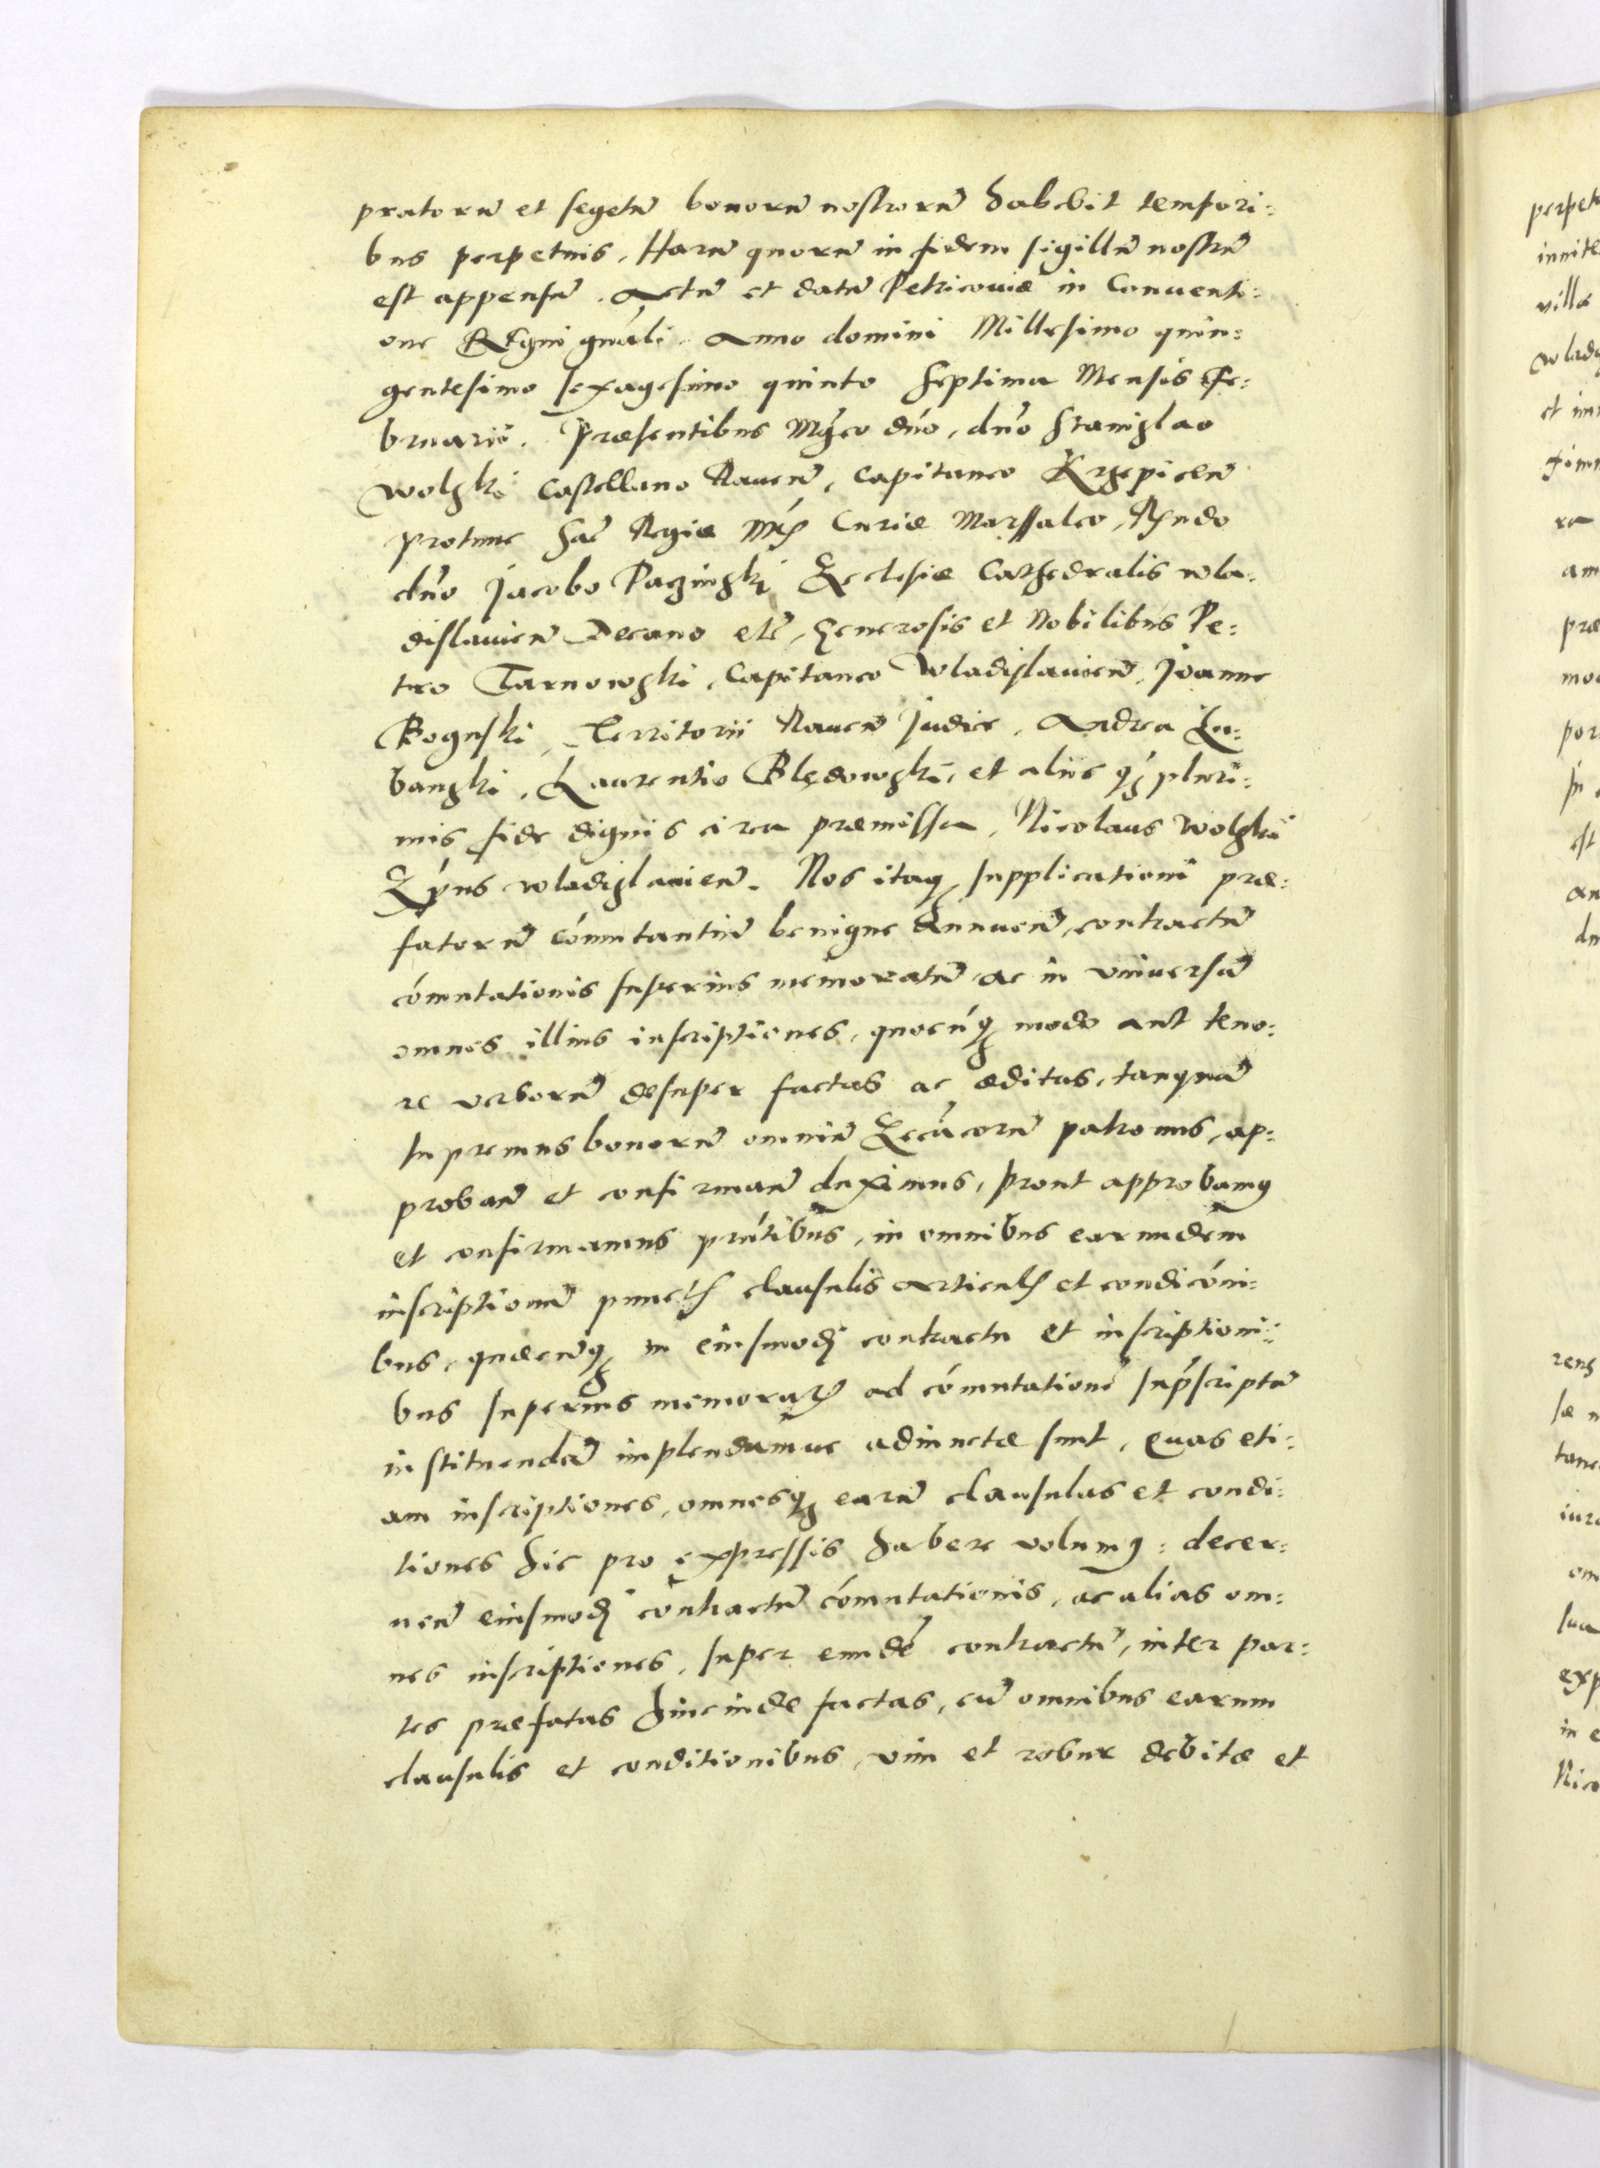 pratorū et segetū bonorū nostrorū habebit tempori:
bus perpetuis. Harū quorū in fidem sigillū nostrū
est appensū. Actū et datū Petricouiæ in Conventi:
one Regni gnáli. Anno domini Millesimo quin:
gentesimo sexagesimo quinto septima Mensis Fe:
bruarii. Præsentibus Mgco dno, dno Stanislao
Wolski Castellano Rauen̄, Capitaneo Krzepicen̄
protunc Sac̄ Regiæ Mtis Curiæ Marssalco, Rndo
dno Jacobo Paczinski Ecclesiæ Cathedralis wla:
dislauien̄ Decano etc̄, Generosis et Nobilibus Pe:
tro Tarnowski, Capitaneo Wladislauien̄, Joanne
Boguski, Territorii Rauen̄ Judice, Andrea Lu:
banski, Laurentio Blędowski, et aliis qz pluri:
mis fide dignis circa præmissa, Nicolaus Wolski
Epus wladislauien̄. Nos itaqz supplicationi præ:
fatorū cómutantiū benigne Annuen̄, contractū
cómutationis superius memoratū ac in vniuersū
omnes illius inscriptiones, quocúqz modo aut teno:
re verborū desuper factas ac æditas, tanquā
supremus bonorū omniū Eccácorū patronus, ap:
proban̄ et confirman̄ duximus, prout approbamus
et confirmamus prñtibus, in omnibus earundem
inscriptionū punctis clausulis articulis et condicóni:
bus, quæcūqz in eiusmodi contractu et inscriptioni:
bus superius memoratis ad cómutationē supscriptā
instituendā implendamue adiunctæ sunt, quas eti:
am inscriptiones, omnesqz earū clausulas et condi:
tiones hic pro expressis habere volumus: decer:
nen̄ eiusmodi contractū cómutationis, ac alias om:
nes inscriptiones, super eundē contractū, inter par:
tes præfatas hincinde factas, cū omnibus earum
clausulis et conditionibus, vim et robur debitæ et